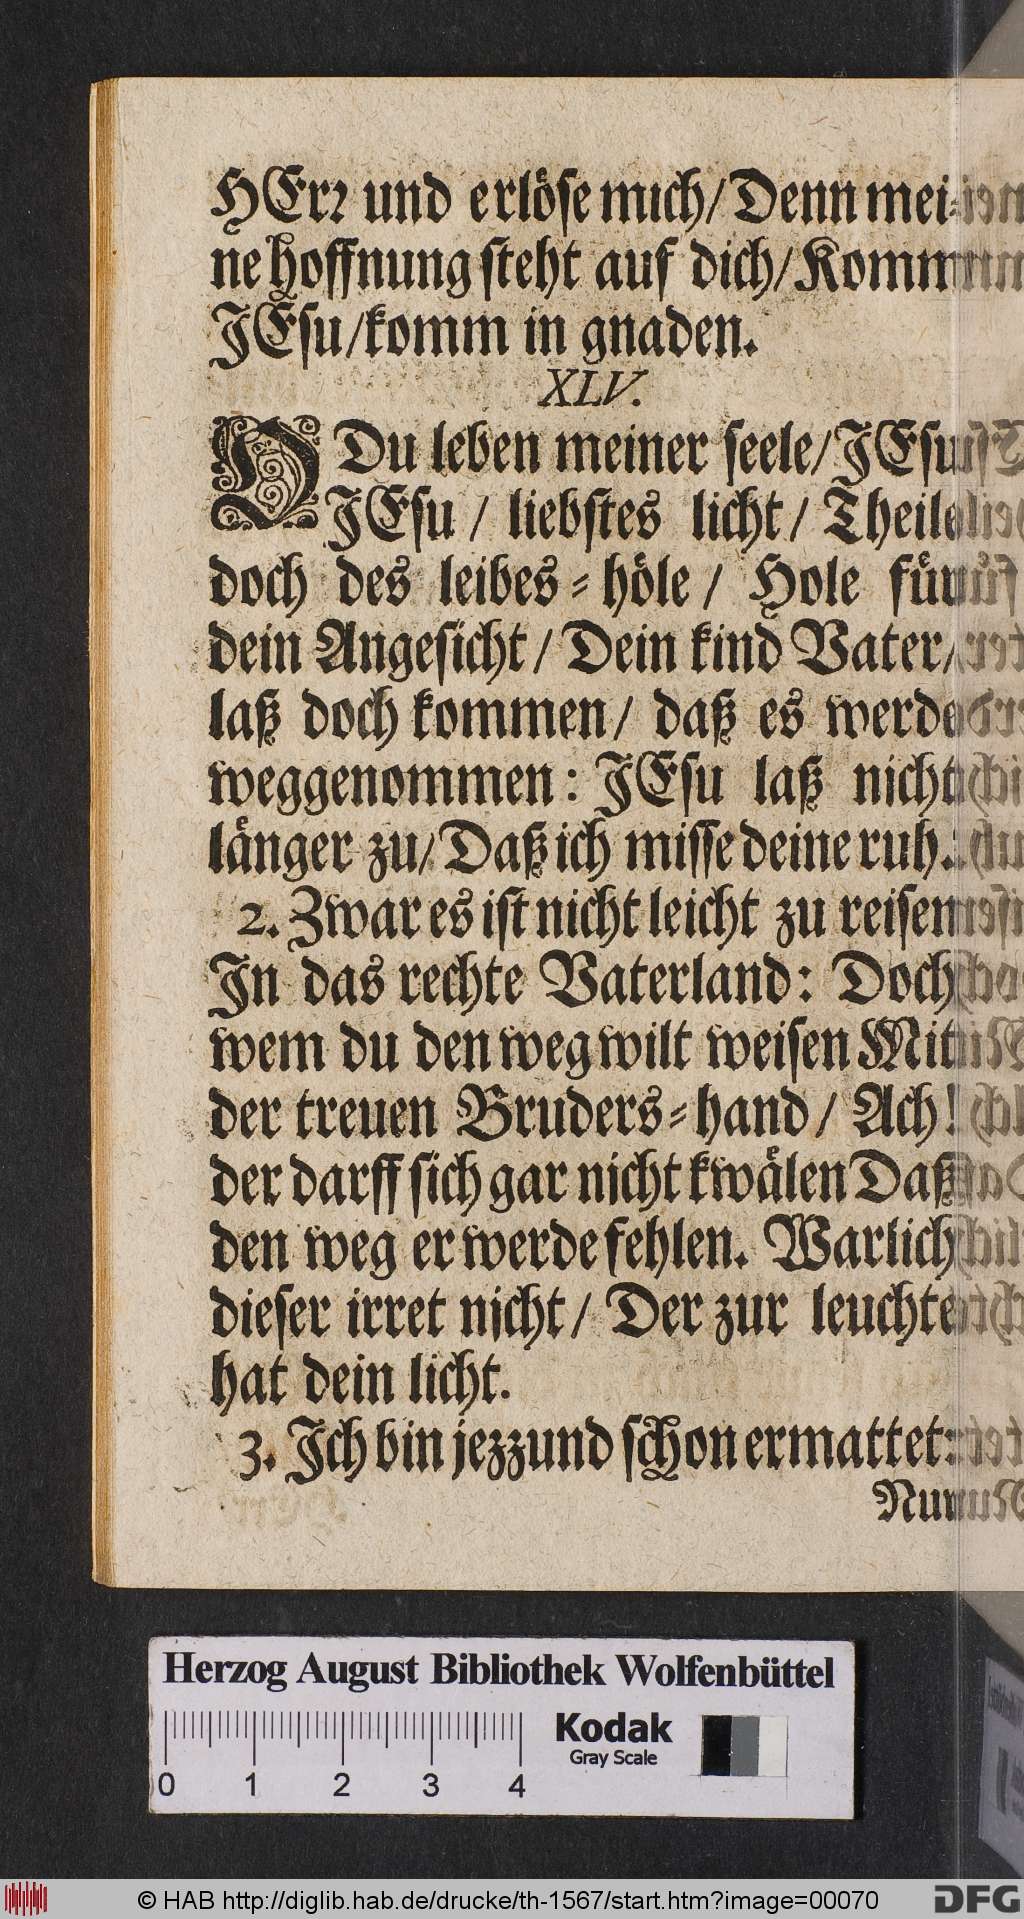 HErr und erlöse mich/ Denn mei-
ne hoffnung steht auf dich/ Komm
JEsu/komm in gnaden.
XLV.
O Du leben meiner seele/ JEsu
JEsu / liebstes licht / Theile
doch des leibes-höle / Hole für
dein Angesicht / Dein kind Vater/
laß doch kommen/ daß es werde
weggenommen: JEsu laß nicht
länger zu/ Daß ich misse deine ruh.
2. Zwar es ist nicht leicht zu reisen
In das rechte Vaterland: Doch
wem du den weg wilt weisen Mit
der treuen Bruders-hand / Ach!
der darff sich gar nicht kwälen Daß
den weg er werde fehlen. Warlich
dieser irret nicht/ Der zur leuchte
hat dein licht.
3. Ich bin jezzund schon ermattet:
Nun
Herzog August Bibliothek Wolfenbüttel
Kodak
Gray Scale
0 1 2 3 4
© HAB http://diglib.hab.de/drucke/th-1567/start.htm?image=00070
DFG